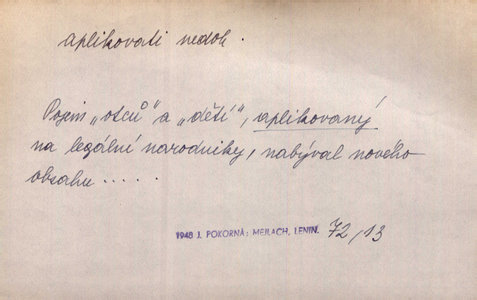 aplikovati nedok.
Pojem „otců" a „dětí", aplikovaný
na legální narodniky, nabýval nového
obsahu .....
1948 J. POKORNÁ: MEJLACH, LENIN. 72/13